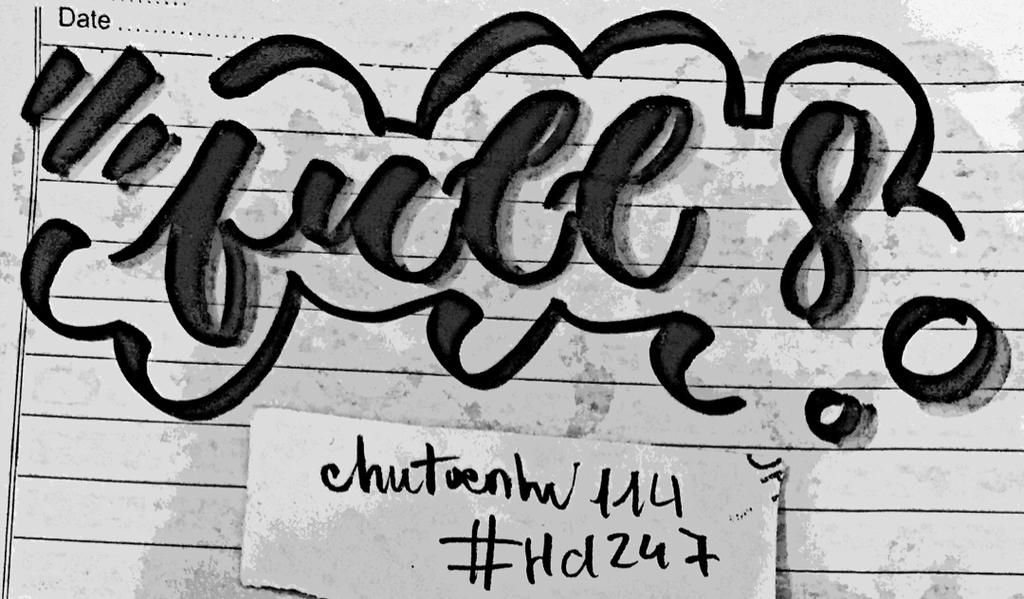 Date ....................
full 8
chutoenhv 114
#Hd247